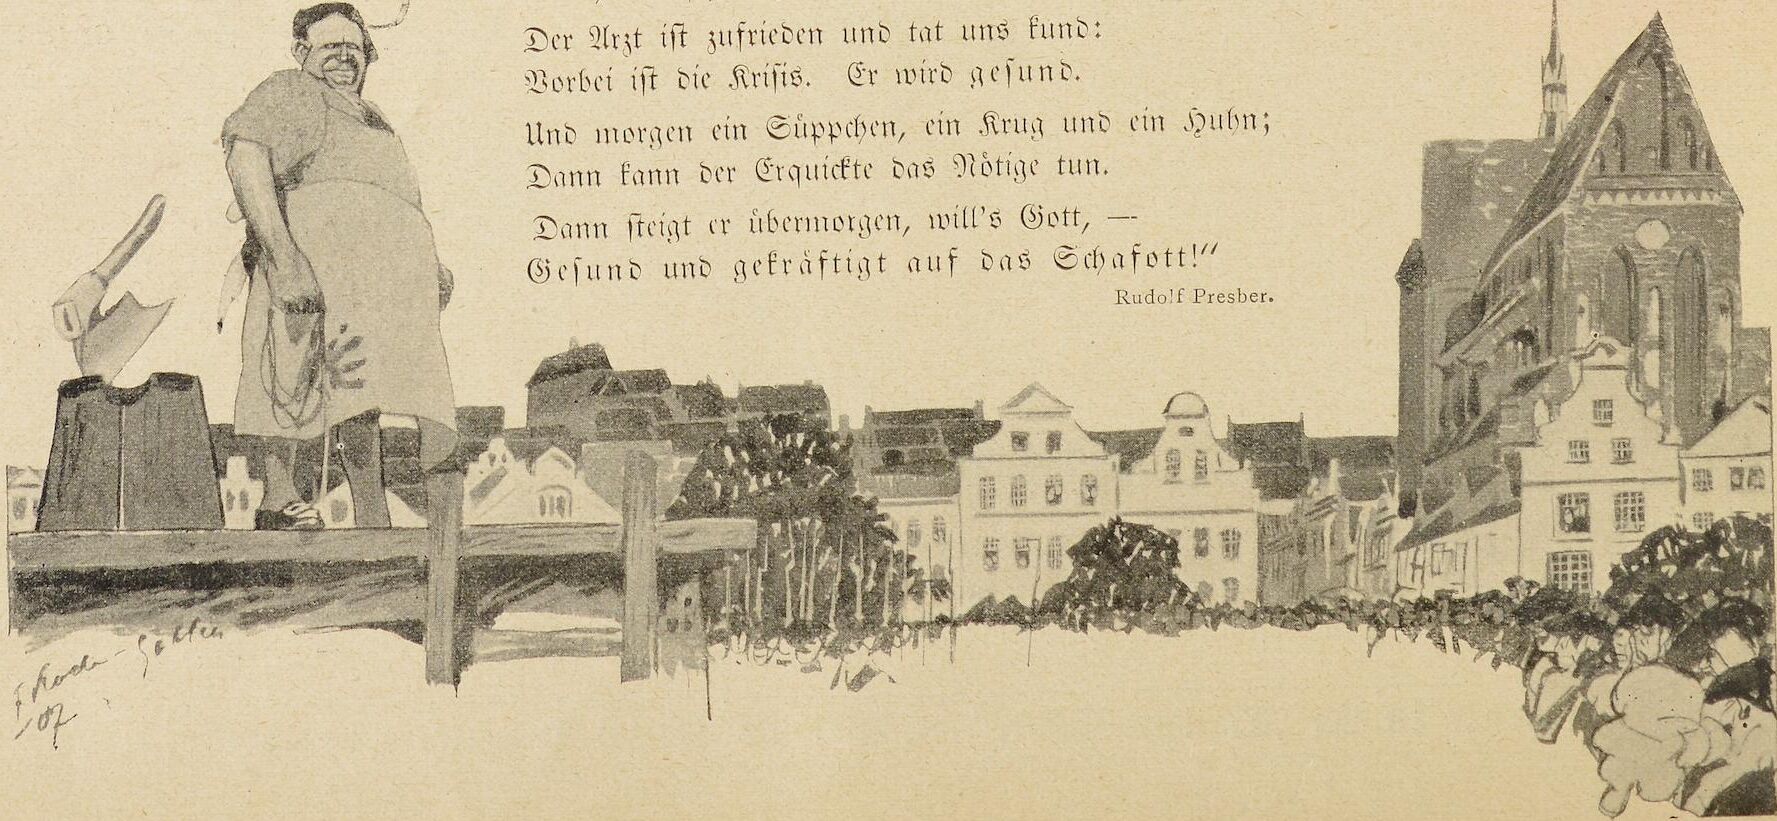 Der Arzt ist zufrieden und tat uns kund:
Vorbei ist die Krisis. Er wird gesund.
Und morgen ein Süppchen, ein Krug und ein Huhn;
Dann kann der Erquickte das Nötige tun.
Dann steigt er übermorgen, will's Gott, —
Gesund und gekräftigt auf das Schafott!“
Rudolf Presber.
07